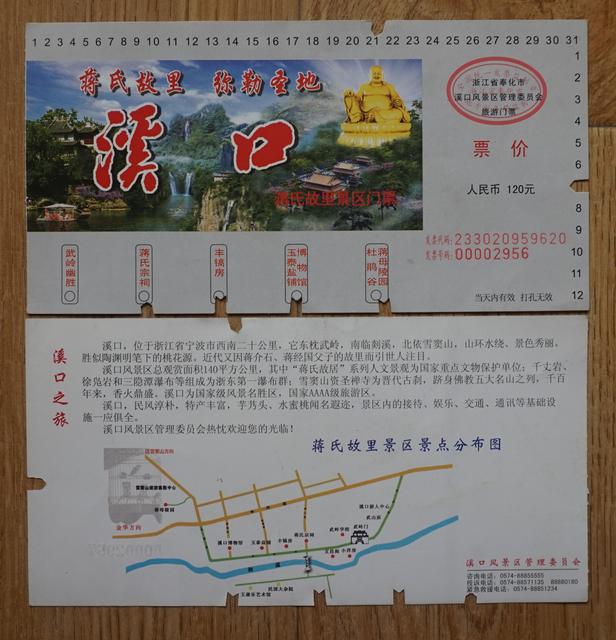 1 2 3 4 5 6 7 8 9 10 11 12 13 14 15 16 17 18 19 20 21 22 23 24 25 26 27 28 29 30 31
1
2
3
4
5
6
8
9
10
11
12
蒋氏故里 弥勒圣地
溪口
蒋氏故里景区门票
浙江省奉化市
溪口风景区管理委员会
旅游门票
票价
人民币 120元
发票代码:233020959620
发票号码:00002956
武岭幽胜
蒋氏宗祠
丰镐房
博物馆
玉泰盐铺
蒋母陵园
杜鹃谷
当天内有效 打孔无效
溪口之旅
溪口,位于浙江省宁波市西南二十公里,它东枕武岭,南临剡溪,北依雪窦山,山环水绕、景色秀丽。
胜似陶渊明笔下的桃花源。近代又因蒋介石、蒋经国父子的故里而引世人注目。
溪口风景区总观赏面积140平方公里,其中“蒋氏故居”系列人文景观为国家重点文物保护单位;千丈岩、
徐凫岩和三隐潭瀑布等组成为浙东第一瀑布群;雪窦山资圣禅寺为晋代古刹,跻身佛教五大名山之列,千百
年来,香火鼎盛。溪口为国家级风景名胜区,国家AAAA级旅游区。
溪口,民风淳朴,特产丰富,芋艿头、水蜜桃闻名遐迩,景区内的接待、娱乐、交通、通讯等基础设
施一应俱全。
溪口风景区管理委员会热忱欢迎您的光临!
蒋氏故里景区景点分布图
往雪窦山方向
雪窦山旅游集散中心
蒋母陵园
金华方向
溪口博物馆
玉泰盐铺
丰镐房
蒋氏宗祠
武岭学校
武岭门
武山庙
溪口游人中心
文昌阁
小洋房
剡溪
民国大杂院
溪口风景区管理委员会
咨询电话:0574-88855555
投诉电话:0574-88571135 88880180
紧急救援电话:0574-88851234